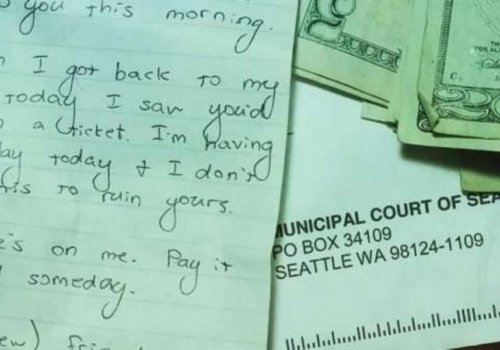 you this morning.
I got back to my
today I saw you'd
a ticket. I'm having
ay today & I don't
is to ruin yours.
's on me. Pay it
someday.
ew)
5
MUNICIPAL COURT OF SEA
PO BOX 34109
SEATTLE WA 98124-1109